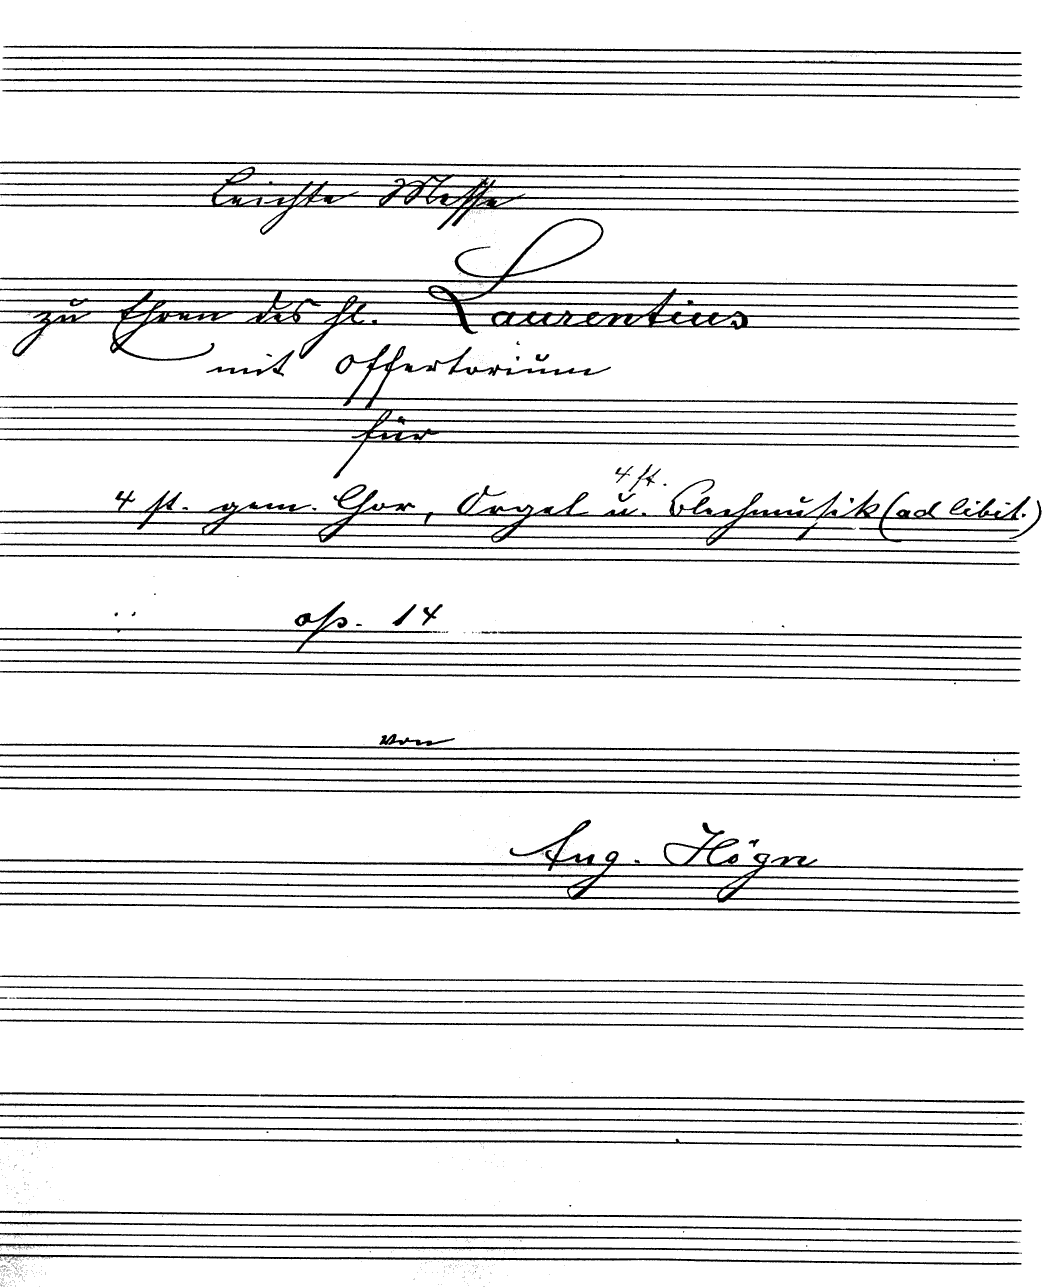 Leichte Messe
zu Ehren des hl. Laurentius
mit Offertorium
für
4 st.
4 st. gem. Chor, Orgel u. Blechmusik (ad libit.)
op. 14
von
Aug. Högn